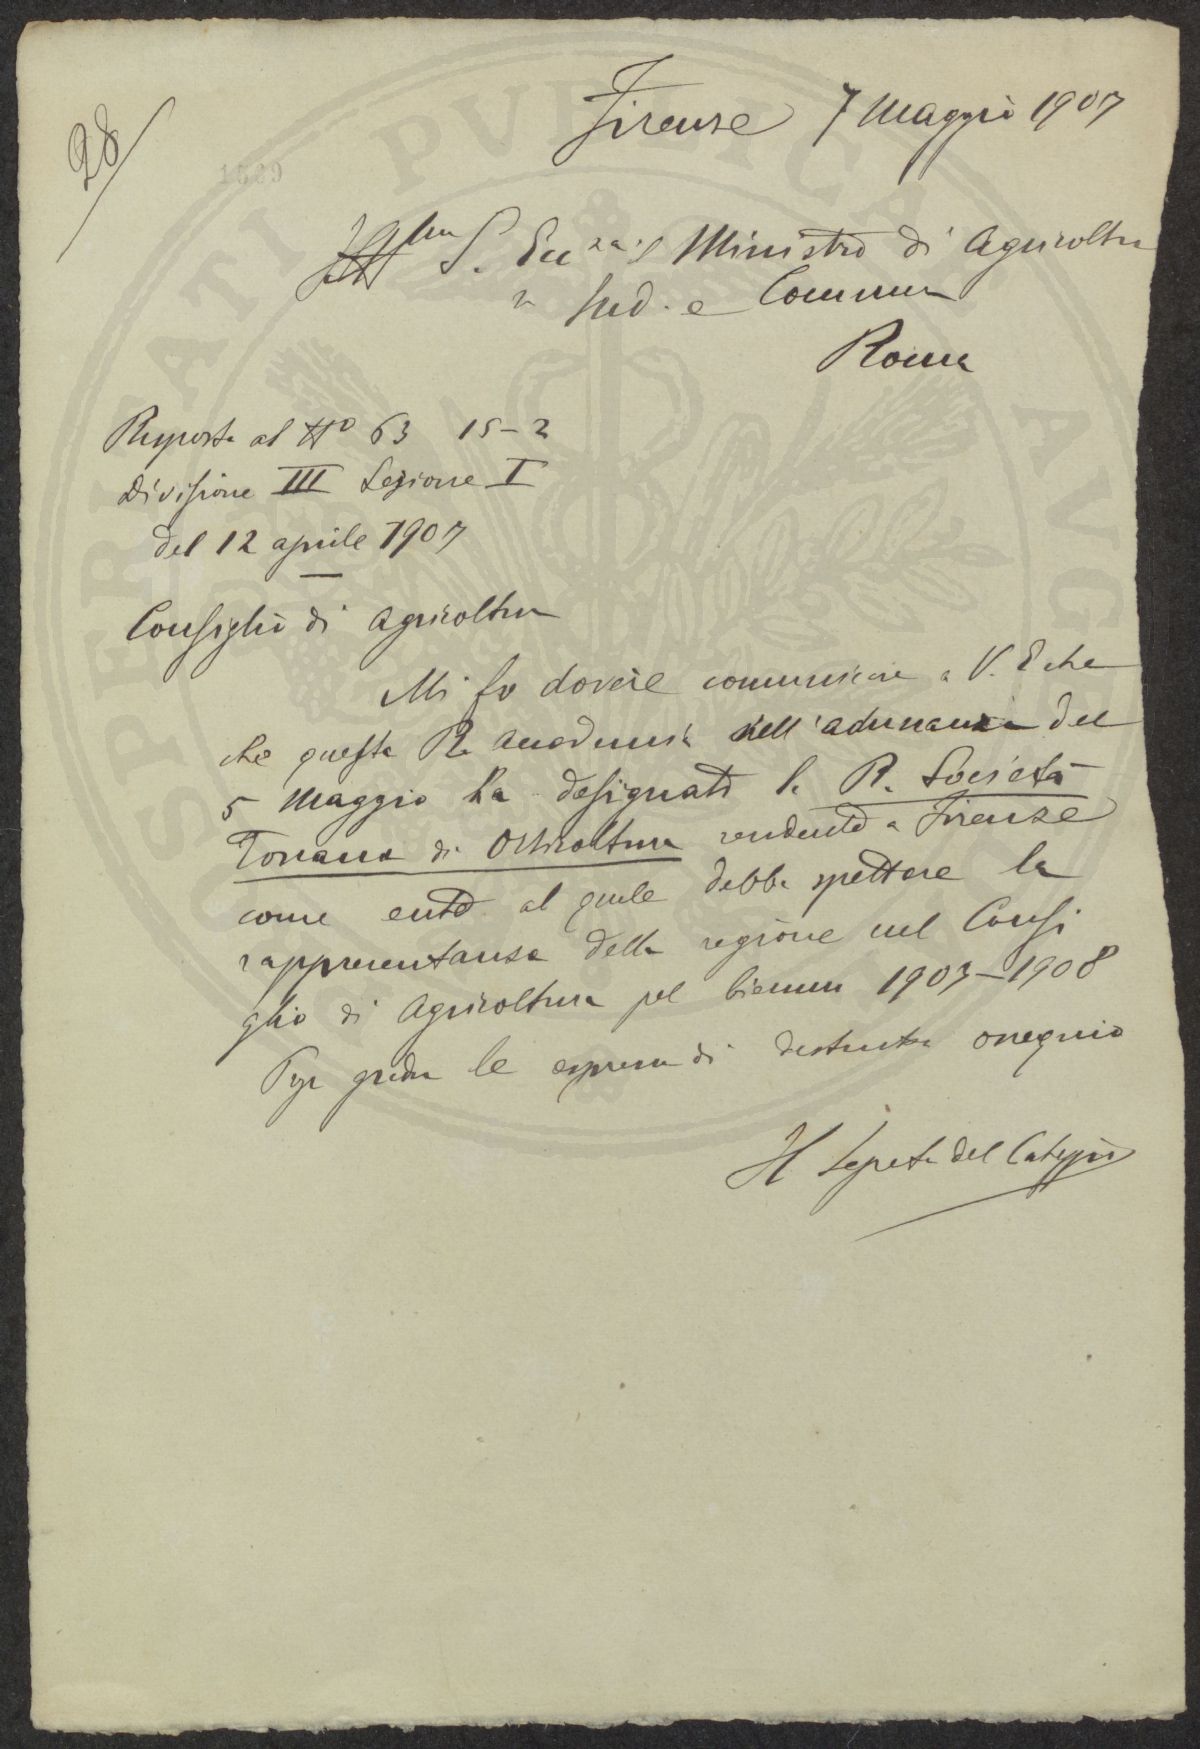 28
Firenze 7 Maggio 1907
S. Ecc.za il Ministro di Agricoltura
Ind. e Commer
Roma
Risposta al No 63 15-2
Divisione III Sezione I
del 12 aprile 1907
Consiglio di Agricoltura
Mi fo dovere comunicare a V. E che
che questa R. Accademia nell'adunanza del
5 Maggio ha designato la R. Società
Toscana di Orticoltura residente a Firenze
come ente al quale debba spettare la
rappresentanza della regione nel Consi
glio di Agricoltura pel biennio 1907-1908
grada le espressi di distinta ossequio
Il Segreta del Carteggio